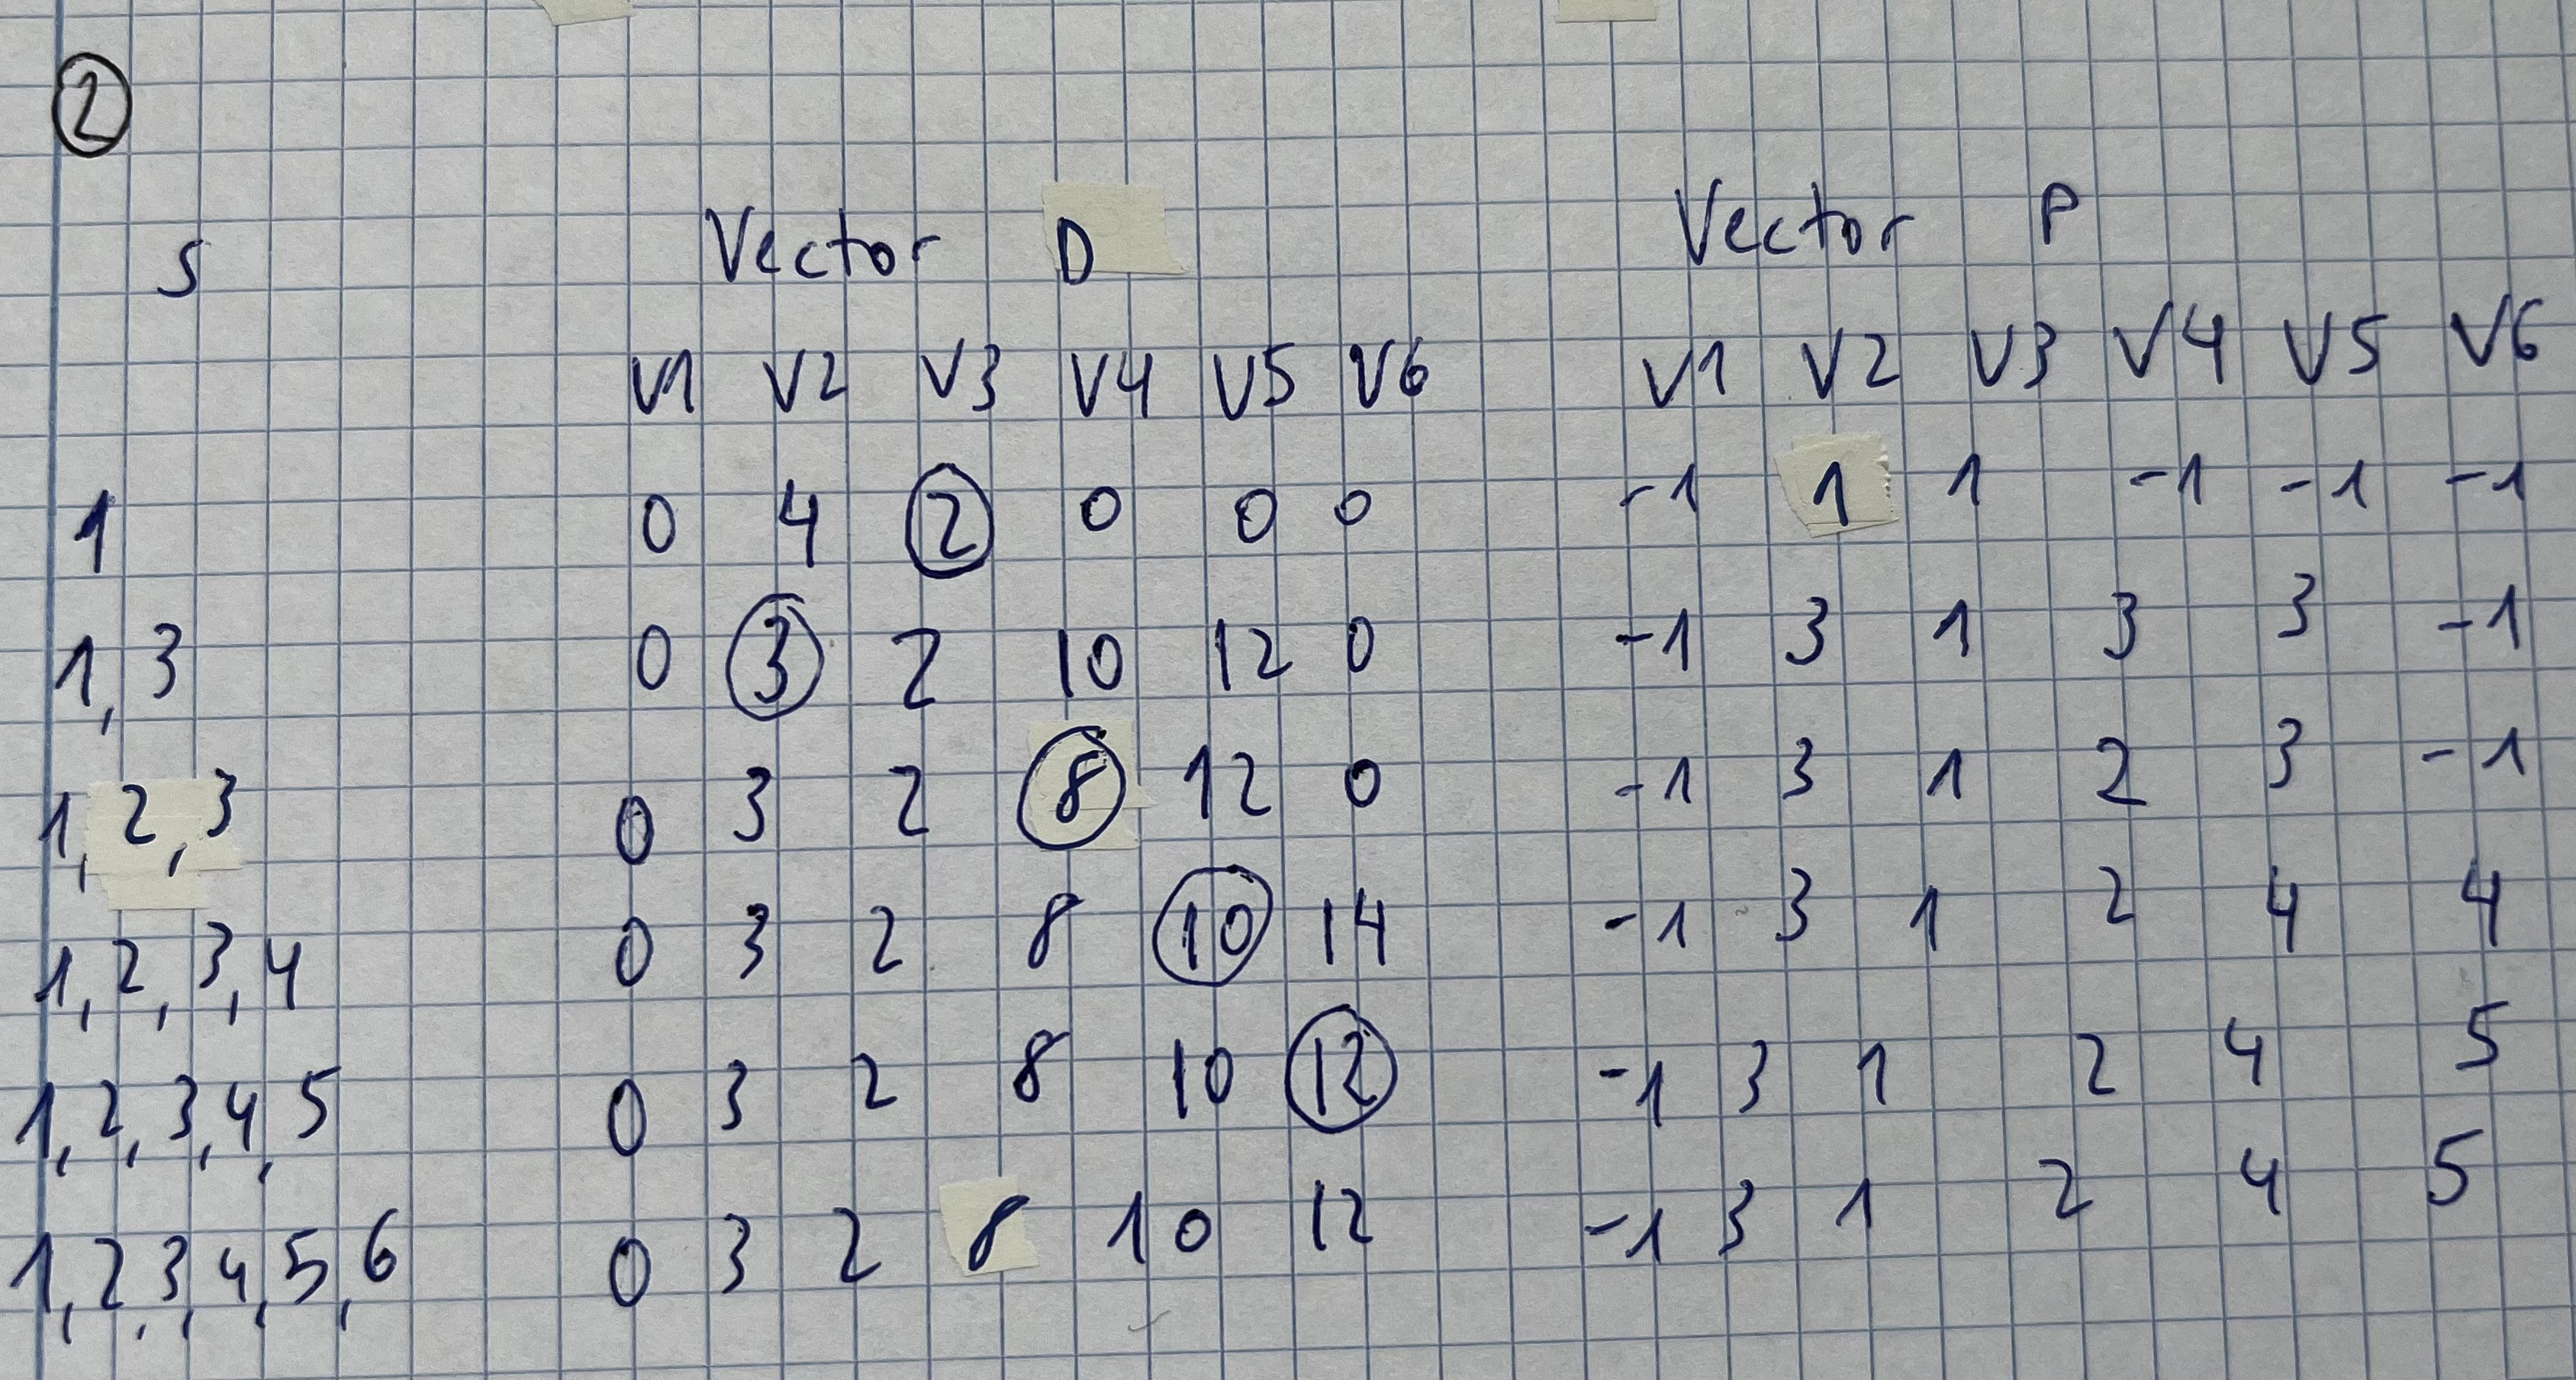 2
S Vector D Vector P
V1 V2 V3 V4 V5 V6 V1 V2 V3 V4 V5 V6
1 0 4 2 0 0 0 -1 1 1 -1 -1 -1
1, 3 0 3 2 10 12 0 -1 3 1 3 3 -1
1, 2, 3 0 3 2 8 12 0 -1 3 1 2 3 -1
1, 2, 3, 4 0 3 2 8 10 14 -1 3 1 2 4 4
1, 2, 3, 4, 5 0 3 2 8 10 12 -1 3 1 2 4 5
1, 2, 3, 4, 5, 6 0 3 2 8 10 12 -1 3 1 2 4 5